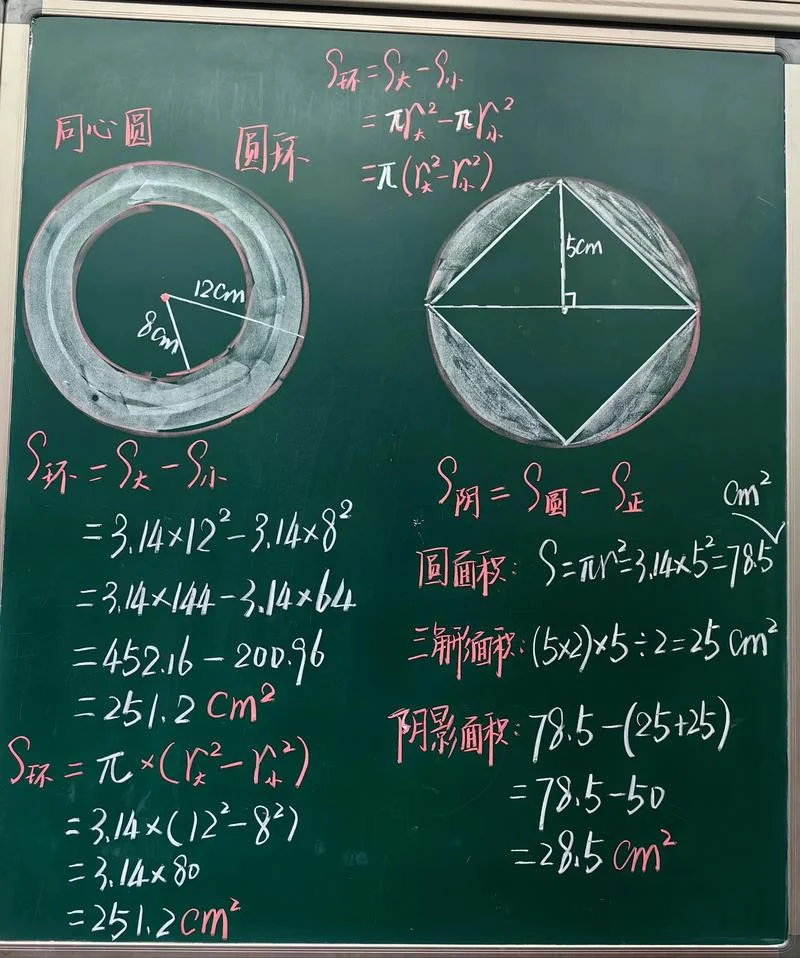 S环=S大-S小
=πr大²-πr小²
=π(r大²-r小²)
同心圆
圆环
12cm
8cm
5cm
S环=S大-S小
=3.14×12²-3.14×8²
=3.14×144-3.14×64
=452.16-200.96
=251.2cm²
S环=π×(r大²-r小²)
=3.14×(12²-8²)
=3.14×80
=251.2cm²
S阴=S圆-S正
cm²
圆面积:S=πr²=3.14×5²=78.5
三角形面积:(5×2)×5÷2=25cm²
阴影面积:78.5-(25+25)
=78.5-50
=28.5cm²